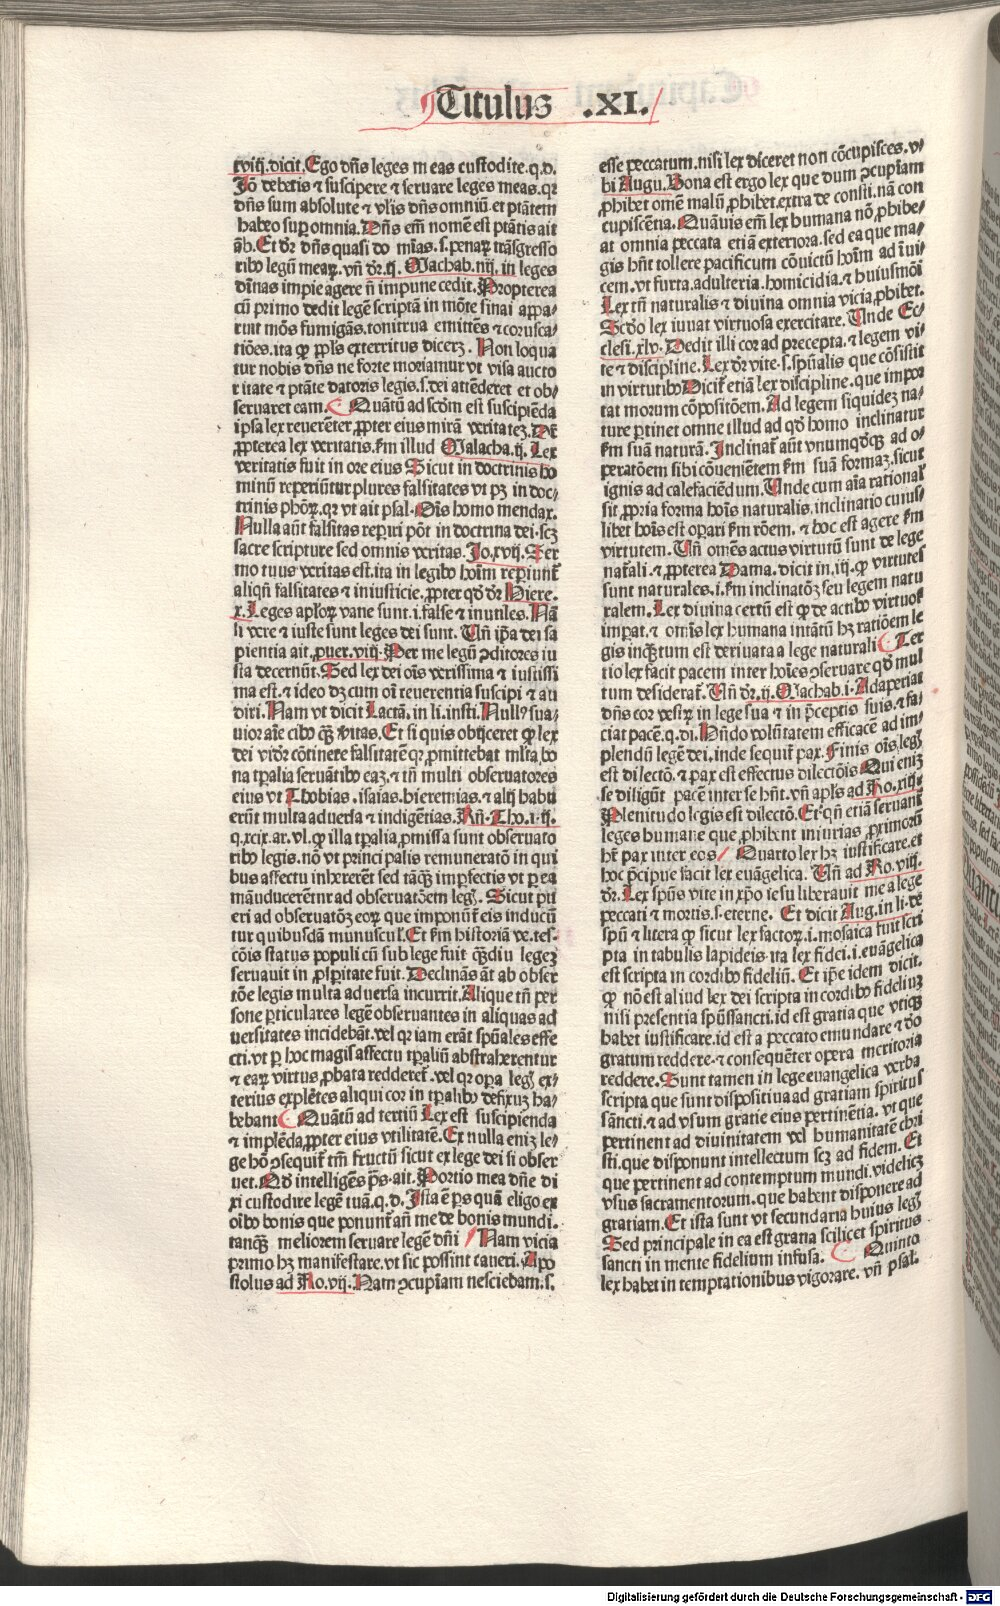 Titulus .XI.
xviij. dicit. Ego dn̄s leges meas custodite. q. d.
Jō debetis ⁊ suscipere ⁊ seruare leges meas. qꝛ
dn̄s sum absolute ⁊ vl̓is dn̄s omniū. et ptātem
habeo suꝑ omnia. Dn̄s em̄ nomē est ptātis ait
ām̄b. Et dr̄ dn̄s quasi do mīas. s. penaꝝ trāsgresso
ribꝰ legū meaꝝ. vn̄ dr̄. ij. Machab. iiij. in leges
diuīnas impie agere n̄ impune cedit. Propterea
cū primo dedit legē scriptā in mōte sinai appa⸗
runt mōs fumigās. tonitrua emittēs ⁊ corusca⸗
tiōes. ita ꝙ ppl̓s exterritus dicerꝫ. Non loqua
tur nobis dn̄s ne forte moriamur vt visa aucto
ritate ⁊ ptāte datoris legis. s. dei attēderet et ob⸗
seruaret eam. Quātū ad scōm est suscipiēda
ipsa lex reuerēter ꝓpter eius mirā veritateꝫ. Dr̄
ꝓpterea lex veritatis. ẜm illud Malacha. ij. Lex
veritatis fuit in ore eius Sicut in doctrinis ho
minū reperiūtur plures falsitates vt pꝫ in doc⸗
trinis ph̄oꝝ. qꝛ vt ait psal. Oīs homo mendax.
Nulla aūt falsitas reꝑiri pōt in doctrina dei. scꝫ
sacre scripture sed omnis veritas. Jo. xvij. Ser
mo tuus veritas est. ita in legibꝰ hoīm reꝑiunt̄
aliqn̄ falsitates ⁊ iniusticie. ꝓpter qd̓ dr̄ Hiere.
x. Leges aploꝝ vane sunt. i. false ⁊ inutiles. Nā
si vere ⁊ iuste sunt leges dei sunt. Un̄ ip̄a dei sa
pientia ait. ꝓuer. viij. Per me legū ↄditores iu
sta decernūt. Sed lex dei oīs verissima ⁊ iustissi
ma est. ⁊ ideo dꝫ cum oī reuerentia suscipi ⁊ au
diri. Nam vt dicit Lactā. in li. insti. Nullꝰ sua⸗
uior aīe cibꝰ qꝫ v̓itas. Et si quis obijceret ꝙ lex
dei vidr̄ cōtinere falsitatē qꝛ ꝓmittebat ml̓ta bo
na tꝑalia seruātibꝰ eaꝫ. ⁊ tn̄ multi obseruatores
eius vt Thobias. isaias. hieremias. ⁊ alij habu
erūt multa aduersa ⁊ indigētias. Rn̄. Tho. i. ij.
q. xcix. ar. vl. ꝙ illa tꝑalia ꝓmissa sunt obseruato
ribꝰ legis. nō vt principalis remuneratō in qui
bus affectu inhererēt sed tāqꝫ imꝑfectis vt ꝑ ea
māuducerēt̄ur ad obseruatōem legꝭ. Sicut pu
eri ad obseruatōꝫ eoꝝ que imponūt̄ eis inducū
tur quibusdā munusculꝭ. Et ẜm historiā ve. tes.
cōis status populi cū sub lege fuit qꝫdiu legeꝫ
seruauit in ꝓsꝑitate fuit. Declinās āt ab obser
tōe legis multa aduersa incurrit. Alique tn̄ per
sone ꝑticulares legē obseruantes in aliquas ad
uersitates incidebāt. vel qꝛ iam erāt spūales effe
cti. vt ꝑ hoc magis affectu tꝑaliū abstraherentur
⁊ eaꝝ virtus ꝓbata redderet̄. vel qꝛ oꝑa legꝭ ex⸗
terius explētes aliqui cor in tꝑalibꝰ defixuꝫ ha⸗
bebant Quātū ad tertiū Lex est suscipienda
⁊ implēda ꝓpter eius vtilitatē. Ex nulla eniꝫ le⸗
ge hō ↄsequit̄ tm̄ fructū sicut ex lege dei si obser
uet. Qd̓ intelligēs ps̄. ait. Portio mea dn̄e di
xi custodire legē tuā. q. d. Ista ē ꝑs quā eligo ex
oībꝰ bonis que ponunt̄ an̄ me de bonis mundi.
tanqꝫ meliorem seruare legē dn̄i Nam vicia
primo hꝫ manifestare. vt sic possint caueri. Apo
stolus ad Ro. vij. Nam ↄcupīam nesciebam. s.
esse peccatum. nisi lex diceret non cōcupisces. v⸗
bi Augu. Bona est ergo lex que dum ↄcupīam
ꝓhibet omē malū ꝓhibet. extra de consti. nā con
cupiscētia. Quāuis em̄ lex humana nō ꝓhibe⸗
at omnia peccata etiā exteriora. sed ea que ma⸗
gis hn̄t tollere pacificum cōuictū hoīm ad īui⸗
cem. vt furta. adulteria. homicidia. ⁊ huiusmōi
Lex tn̄ naturalis ⁊ diuina omnia vicia ꝓhibet.
Scd̓o lex iuuat virtuosa exercitare. Unde Ec⸗
clesi. xlv. Dedit illi cor ad precepta. ⁊ legem vi⸗
te ⁊ discipline. Lex dr̄ vite. s. spūalis que cōsistit
in virtutibꝰ Dicit̄ etiā lex discipline. que impor
tat morum cōpositōem. Ad legem siquideꝫ na⸗
ture ꝑtinet omne illud ad qd̓ homo inclinatur
ẜm suā naturā. Inclinat̄ aūt vnumqd̓qꝫ ad o⸗
peratōem sibi cōuenientem ẜm suā formaꝫ. sicut
ignis ad calefaciēdum. Unde cum aīa rational̓
sit ꝓpria forma hoīs naturalis. inclinatio cuius⸗
libet hoīs est oꝑari ẜm rōem. ⁊ hoc est agere ẜm
virtutem. Un̄ om̄es actus virtutū sunt de lege
nat̄ali. ⁊ ꝓpterea Dama. dicit in. iij. ꝙ virtutes
sunt naturales. i. ẜm inclinatōꝫ seu legem natu
ralem. Lex diuina certū est ꝙ de actibꝰ virtuoꝭ
imꝑat. ⁊ omīs lex humana intātū hꝫ ratiōem le
gis inqꝫtum est deriuata a lege naturali Ter
tio lex facit pacem inter hoīes ↄseruare qd̓ mul
tum desiderat̄. Un̄ dr̄. ij. Machab. i. Adaperiat
dn̄s cor vestꝝ in lege sua ⁊ in p̄ceptis suis. ⁊ fa⸗
ciat pacē. q. di. Nn̄do volūtatem efficacē ad im⸗
plendū legē dei. inde sequit̄ pax. Finis oīs legꝭ
est dilectō. ⁊ pax est effectus dilectiōis Qui eniꝫ
se diligūt pacē inter se hn̄t. vn̄ apl̓s ad Ro. xiij.
Plenitudo legis est dilectō. Et qn̄ etiā seruant̄
leges humane que ꝓhibent iniurias ꝓximoꝝ
hr̄ pax inter eos Quarto lex hꝫ iustificare. et
hoc p̄cipue facit lex euāgelica. Un̄ ad Ro. viij.
dr̄. Lex spūs vite in xp̄o iesu liberauit me a lege
peccati ⁊ mortis. s. eterne. Et dicit Aug. in li. de
spū ⁊ litera ꝙ sicut lex factoꝝ. i. mosaica fuit scri
pta in tabulis lapideis. ita lex fidei. i. euāgelica
est scripta in cordibꝰ fideliū. Et ip̄e idem dicit.
ꝙ nō est aliud lex dei scripta in cordibꝰ fideliuꝫ
nisi presentia spūssancti. id est gratia que vtiqꝫ
habet iustificare. id est a peccato emundare ⁊ dō
gratum reddere. ⁊ consequēter opera meritoria
reddere. Sunt tamen in lege euangelica verba
scripta que sunt dispositiua ad gratiam spiritus
sācti. ⁊ ad vsum gratie eius pertinētia. vt que
pertinent ad diuinitatem vel humanitatē chri
sti. que disponunt intellectum scꝫ ad fidem. Et
que pertinent ad contemptum mundi. videlicꝫ
vsus sacramentorum. que habent disponere ad
gratiam. Et ista sunt vt secundaria huius legꝭ
Sed principale in ea est gratia scilicet spiritus
sancti in mente fidelium infusa. Quinto
lex habet in temptationibus vigorare. vn̄ psal̓.
Digitalisierung gefördert durch die Deutsche Forschungsgemeinschaft - DFG